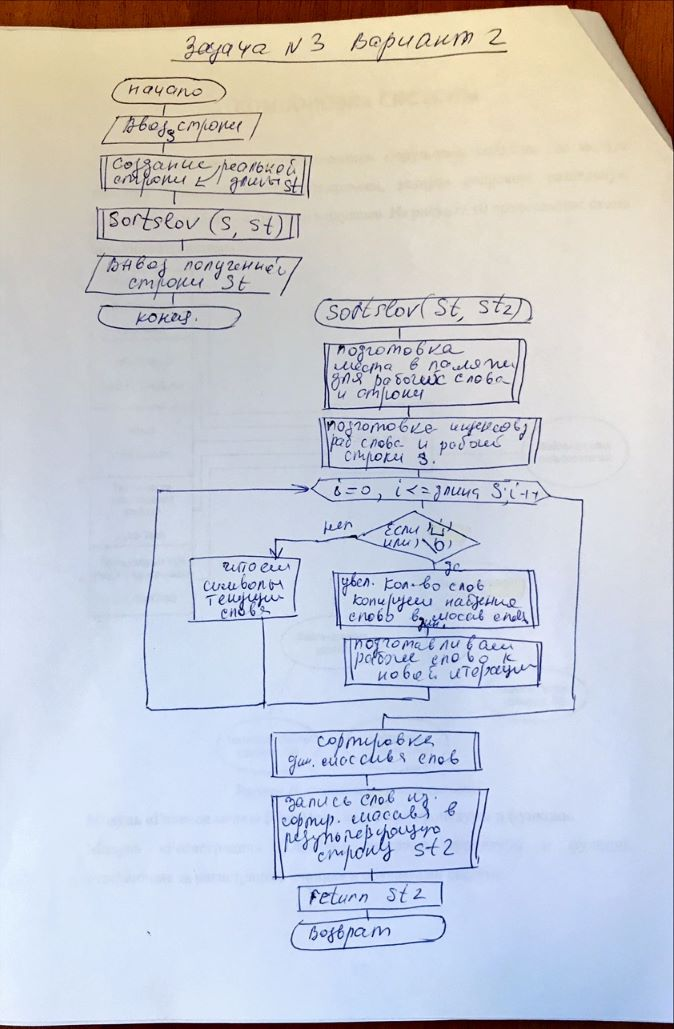 Задача N3 Вариант 2
начало
Ввод строки
S
создание реальной
строки длины St
Sortslov (S, St)
Вывод полученной
строки St
конец.
Sortslov (St, St2)
подготовка
места в памяти
для рабочих слова
и строки
подготовка индексов,
раб слова и рабочей
строки S.
i=0, i<=длина S, i++
Если
или '\0'
нет
да
читаем
символы
текущего
слова
увел. Кол-во слов
копируем найденное
слово в массив слов
дин.
подготавливаем
рабочее слово к
новой итерации
сортировка
дин. массива слов
запись слов из
сортир. массива в
результирующую
строку St2
return St2
Возврат